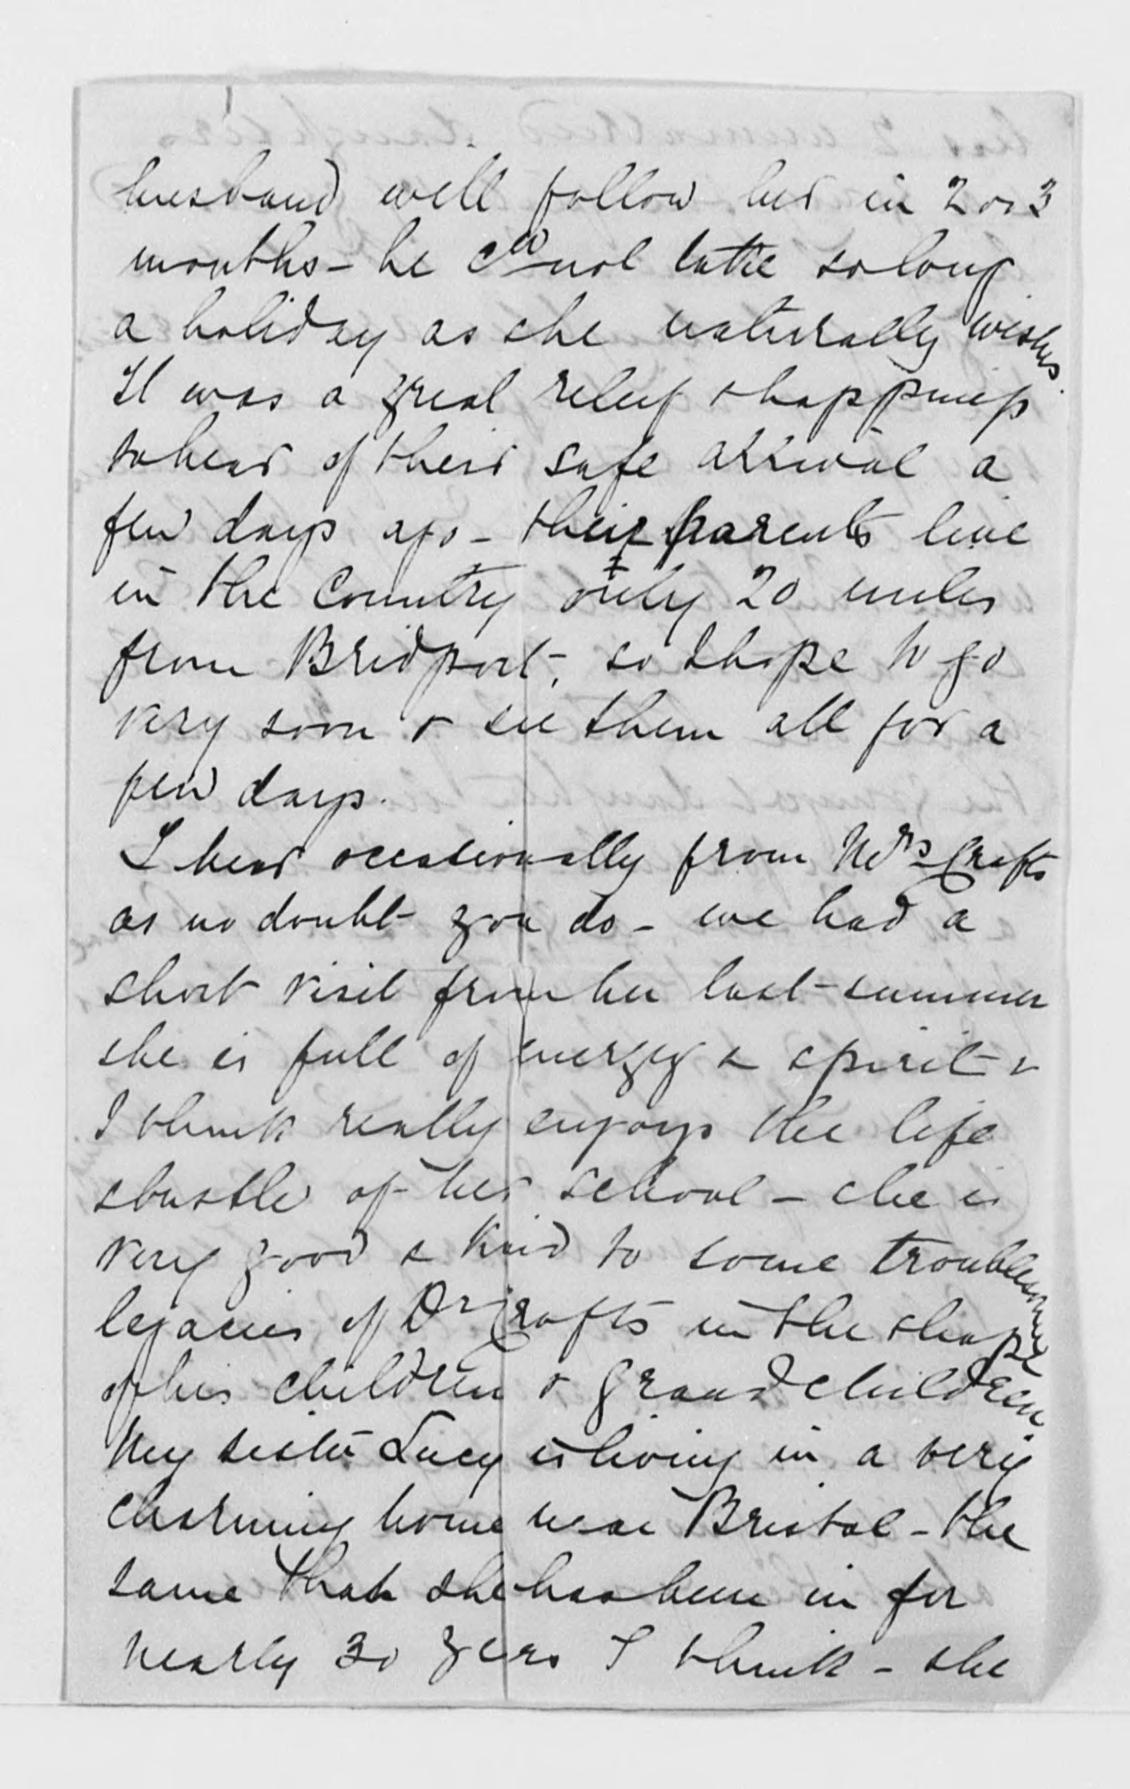 husband will follow her in 2 or 3
months - he cd not take so long
a holiday as she naturally wishes.
It was a great relief & happiness
to hear of their safe arrival a
few days ago - their parents live
in the Country only 20 miles
from Bridport, so I hope to go
very soon & see them all for a
few days.
I hear occasionally from Mrs Crafts
as no doubt you do - we had a
short visit from her last summer
she is full of energy & spirit &
I think really enjoys the life
& bustle of her school - she is
very good & kind to some troublesome
legacies of Dr Crafts in the shape
of his children & grandchildren
My sister Lucy is living in a very
charming home near Bristol - the
same that she has been in for
nearly 30 years I think - she